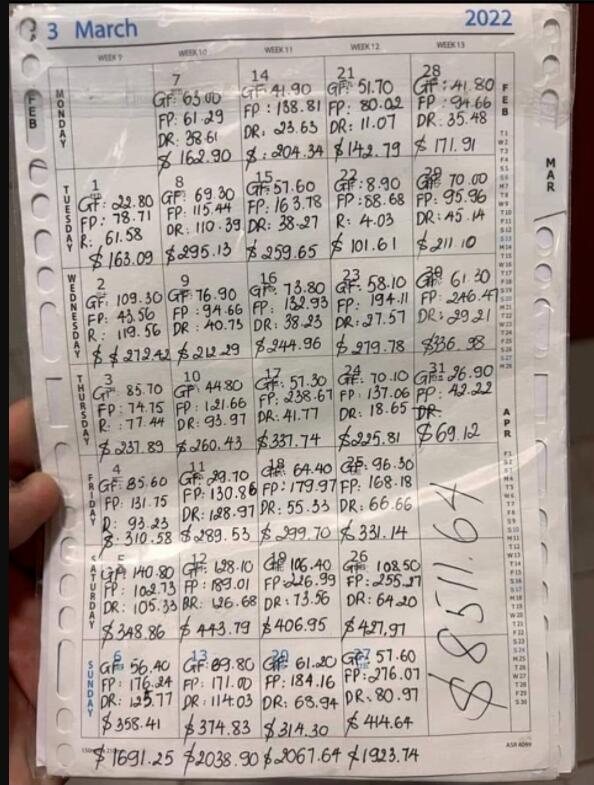 3 March
2022
WEEK 9
WEEK 10
WEEK 11
WEEK 12
WEEK 13
FEB
MONDAY
7
GF: 63.00
FP: 61.29
DR: 38.61
$ 162.90
14
GF: 41.90
FP: 138.81
DR: 23.63
$: 204.34
21
GF: 51.70
FP: 80.02
DR: 11.07
$142.79
28
GF: 41.80
FP: 94.66
DR: 35.48
$ 171.91
TUESDAY
1
GF: 22.80
FP: 78.71
R: 61.58
$163.09
8
GF: 69.30
FP: 115.44
DR: 110.39
$295.13
15
GF: 57.60
FP: 163.78
DR: 38.27
$259.65
22
GF: 8.90
FP: 88.68
R: 4.03
$ 101.61
29
GF: 70.00
FP: 95.96
DR: 45.14
$211.10
WEDNESDAY
2
GF: 109.30
FP: 43.56
R: 119.56
$ $ 272.42
9
GF: 76.90
FP: 94.66
DR: 40.73
$212.29
16
GF: 73.80
FP: 132.93
DR: 38.23
$244.96
23
GF: 58.10
FP: 194.11
DR: 27.57
$279.78
30
GF: 61.30
FP: 246.47
DR: 29.21
$336.98
THURSDAY
3
GF: 85.70
FP: 74.75
R: 77.44
$237.89
10
GF: 44.80
FP: 121.66
DR: 93.97
$260.43
17
GF: 57.30
FP: 238.67
DR: 41.77
$337.74
24
GF: 70.10
FP: 137.06
DR: 18.65
$225.81
31
GF: 26.90
FP: 42.22
DR:
$69.12
FRIDAY
4
GF: 85.60
FP: 131.75
R: 93.23
$: 310.58
11
GF: 29.70
FP: 130.86
DR: 128.97
$289.53
18
GF: 64.40
FP: 179.97
DR: 55.33
$299.70
25
GF: 96.30
FP: 168.18
DR: 66.66
$331.14
SATURDAY
5
GF: 140.80
FP: 102.73
DR: 105.33
$348.86
12
GF: 128.10
FP: 189.01
DR: 126.68
$443.79
19
GF: 106.40
FP: 226.99
DR: 73.56
$406.95
26
GF: 108.50
FP: 255.27
DR: 64.20
$427.97
SUNDAY
6
GF: 56.40
FP: 176.24
DR: 125.77
$358.41
13
GF: 89.80
FP: 171.00
DR: 114.03
$374.83
20
GF: 61.20
FP: 184.16
DR: 68.94
$314.30
27
GF: 57.60
FP: 276.07
DR: 80.97
$414.64
$8511.64
$1691.25
$2038.90
$2067.64
$1923.74
FEB
MAR
APR
ASR 4099